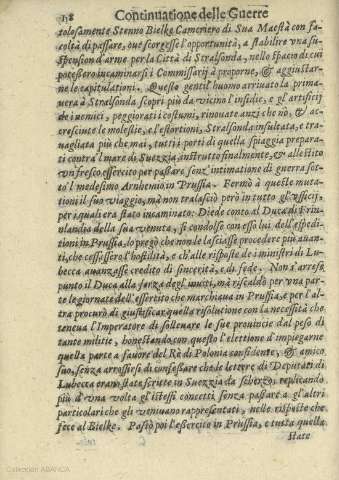 18 Continuatione delle Guerre
tolosamente Stenno Bielke Cameriero di Sua Maestà con fa-
coltà di passare, oue scorgesse l'opportunità, a stabilire vna su-
spensione d'arme per la Città di Stralsonda, nello spacio di cui
potessero incaminarsi i Commissarij à proporne, & aggiustar-
ne le capitulationi. Questo gentil'huomo arriuato la prima-
uera à Stralsonda scoprì più da vicino l'insidie, e gl'artificij
de nemici, peggiorati i costumi, rinouate anzi che nò, & ac-
cresciute le molestie, e l'estortioni, Stralsonda insultata, e tra-
uagliata più che mai, tutti i porti di quella spiaggia prepara-
ti contra'l mare di Suezzia, instrutto finalmente, & allestito
vn fresco essercito per passare senz'intimatione di guerra sot-
to'l medesimo Arnhemio in Prussia. Fermò à queste muta-
tioni il suo viaggio, mà non tralasciò però in tutto gl'vfficij,
per i quali era stato incaminato: Diede conto al Duca di Frit-
landia della sua venuta, si condolse con esso lui dell'espedi-
zioni in Prussia, lo pregò che non le lasciasse procedere più auan-
ti, che cessassero l'hostilità, e ch'alle risposte de i ministri di Lu-
becca auanzasse credito di sincerità, e di fede. Non s'arrese
punto il Duca alla forza degl'inuiti, mà riscaldò per vna par-
te le giornate dell'essercito che marchiaua in Prussia, e per l'al-
tra procurò di giustificar quella risolutione con la necessità che
teneua l'Imperatore di solleuare le sue prouincie dal peso di
tante militie, honestando con questo l'elettione d'impiegarne
quella parte a fauore del Rè di Polonia confidente, & amico
suo, senza arrossirsi di confessare che le lettere di Deputati di
Lubecca erano state scritte in Suezzia da scherzo, replicando
più d'vna volta gl'istessi concetti senza passare a gl'altri
particolari che gli veniuano rappresentati, nelle risposte che
fece al Bielke. Passò poi l'essercito in Prussia, e tutta quella
state
Colección ABANCA